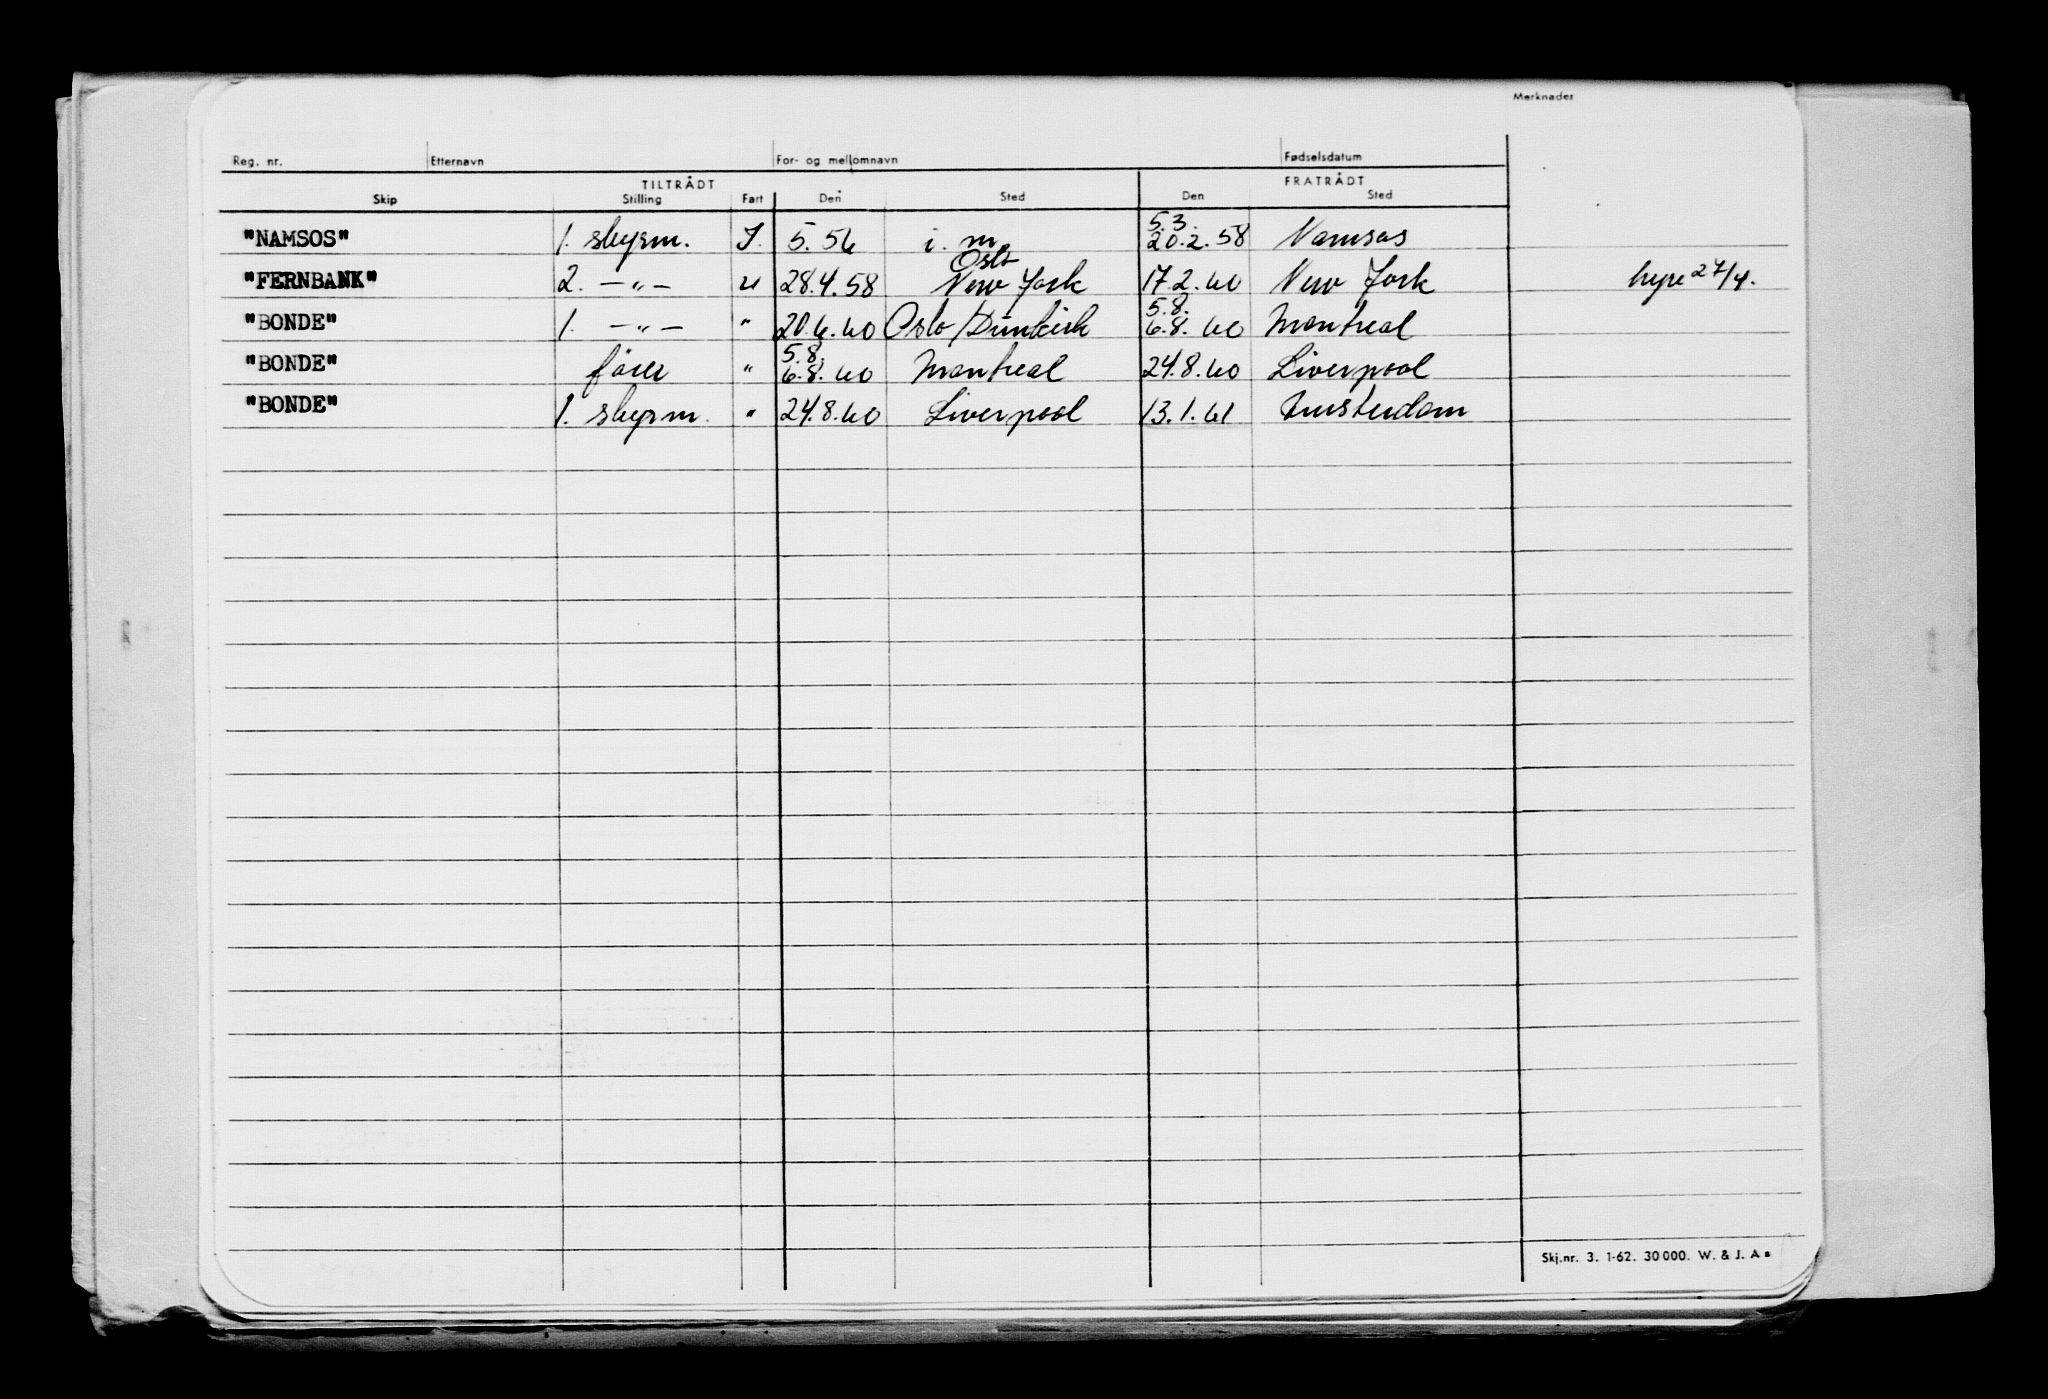 Merknader
Reg. nr. Etternavn For- og mellomnavn Fødselsdatum
TILTRÅDT FRATRÅDT
Skip Stilling Fart Den Sted Den Sted
5.3.
"NAMSOS" 1. styrm. 5. 56 i. m. 20.2.58 Namsos
Oslo
"FERNBANK" 2. —„— " 28.4.58 New York 17.2.60 New York hyre 27/4.
5.8.
"BONDE" 1. —„— " 20.6.60 Oslo/Dunkirk 6.8.60 Montreal
5.8.
"BONDE" fører " 6.8.60 Montreal 24.8.60 Liverpool
"BONDE" 1. styrm. " 24.8.60 Liverpool 13.1.61 Amsterdam
Skj.nr. 3. 1-62. 30 000. W. & J. A s